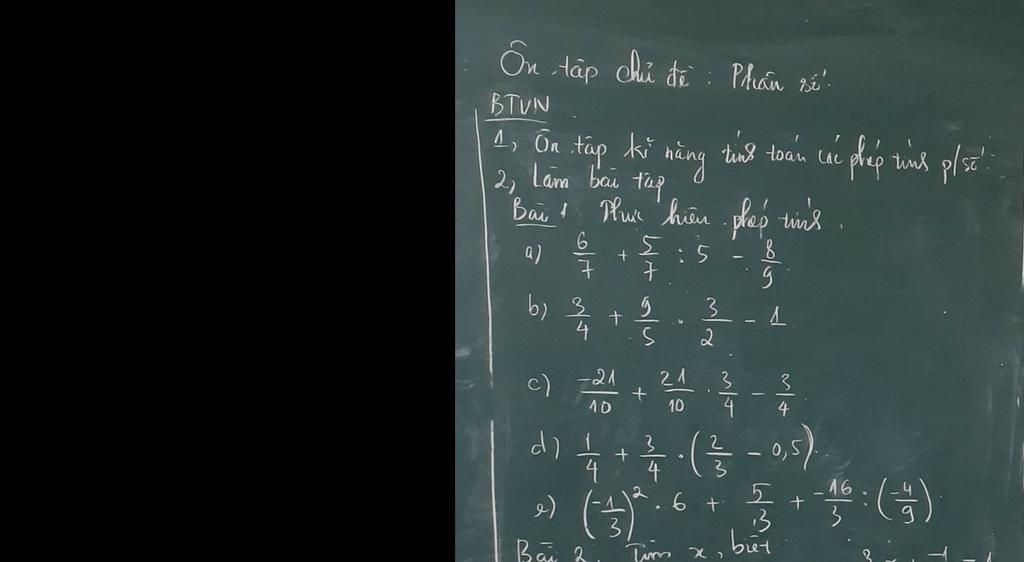 Ôn tập chủ đề : Phân số
BTVN
1, Ôn tập kĩ năng tính toán các phép tính p/số
2, Làm bài tập
Bài 1 Thực hiện phép tính
a) 6/7 + 5/7 : 5 - 8/9
b) 3/4 + 9/5 . 3/2 - 1
c) -21/10 + 21/10 . 3/4 - 3/4
d) 1/4 + 3/4 . (2/3 - 0,5)
e) (-1/3)² . 6 + 5/3 + -16/3 : (-4/9)
Bài 2. Tìm x, biết